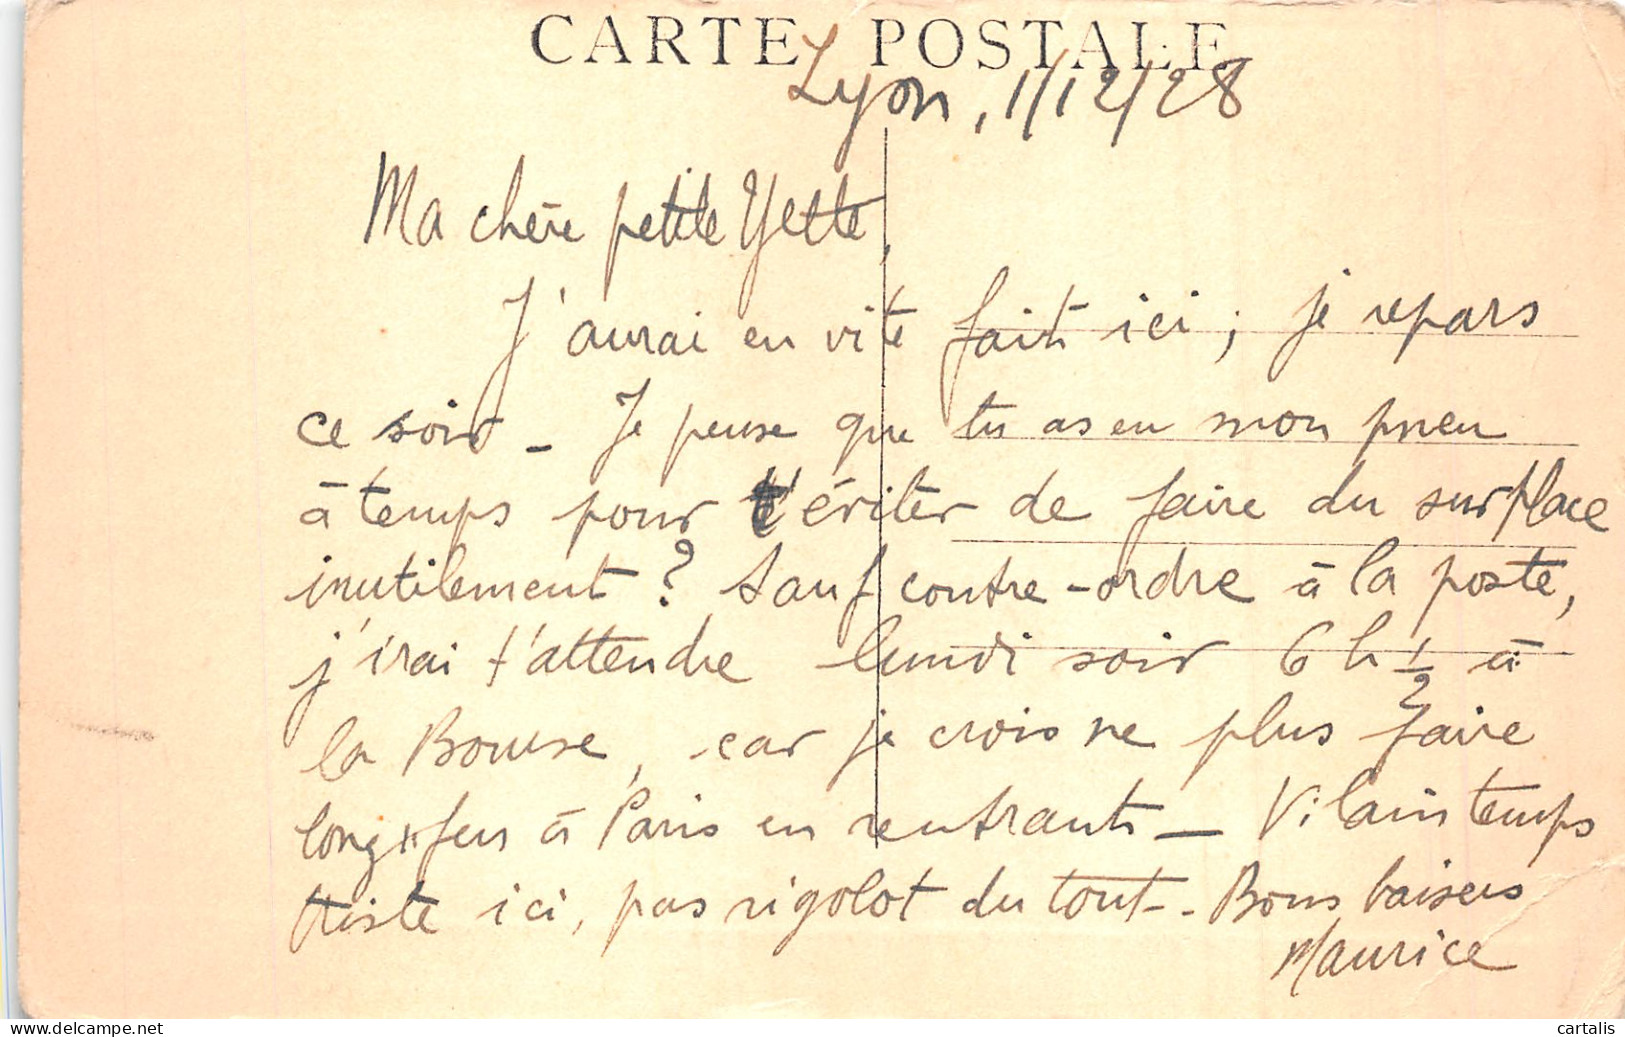 CARTE POSTALE
Lyon, 1/12/28
Ma chère petite Yette,
J'aurai en vite fait ici ; je repars
ce soir - Je pense que tu as eu mon pneu
à temps pour t'éviter de faire du surplace
inutilement ? Sauf contre-ordre à la poste,
j'irai t'attendre lundi soir 6 h 1/2 à
la Bourse, car je crois ne plus faire
long feu à Paris en rentrant - Vilain temps
triste ici, pas rigolot du tout - Bons baisers
Maurice
www.delcampe.net
cartalis